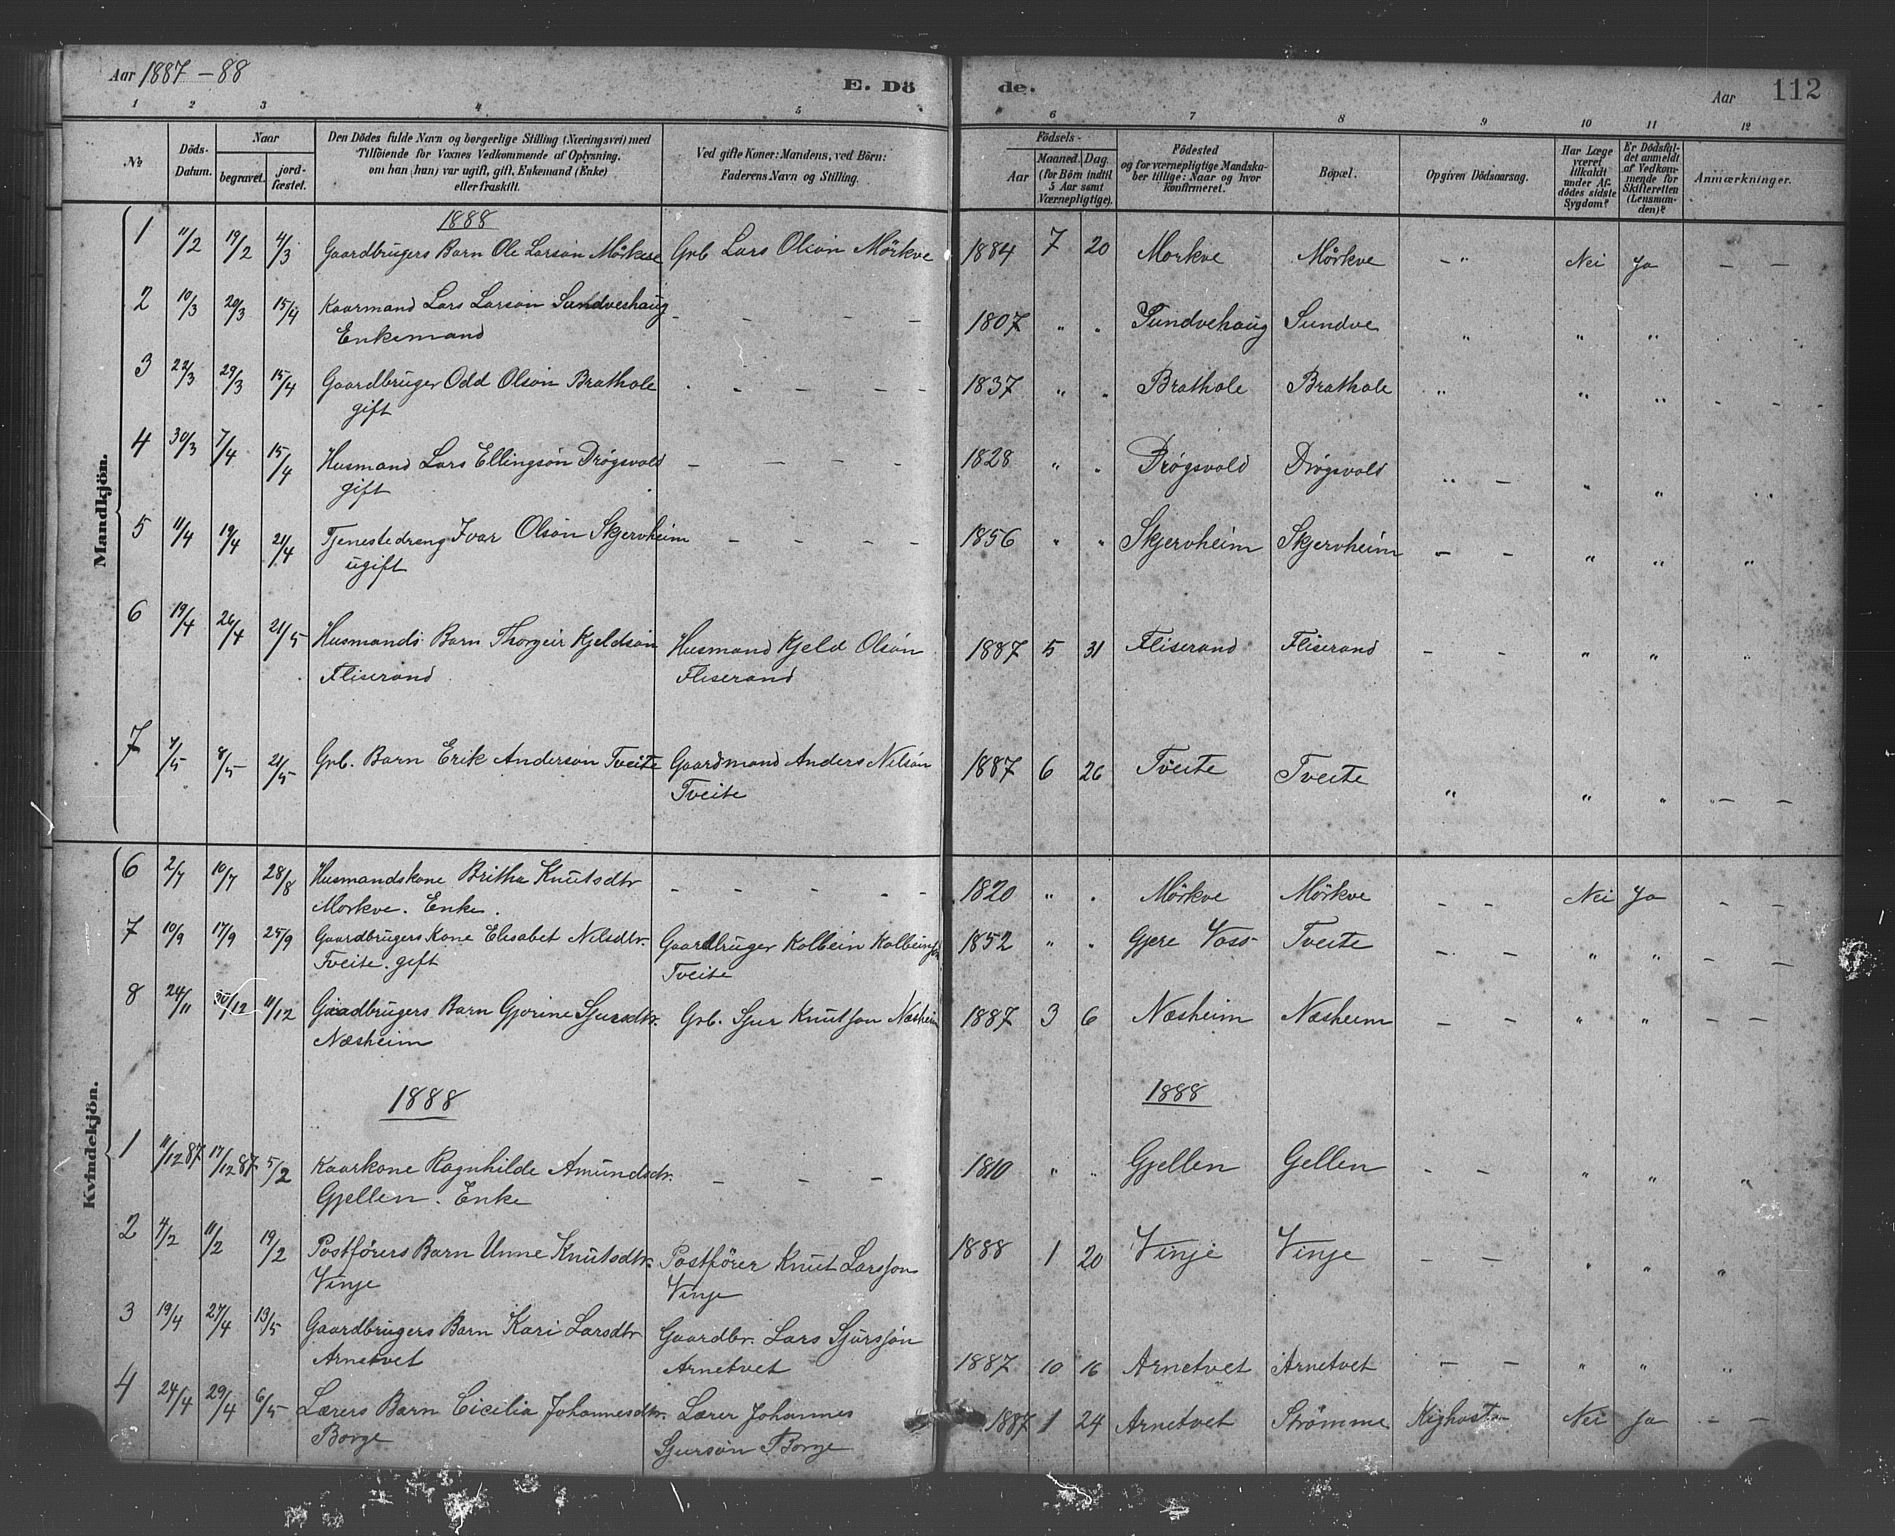 Aar 1887-88
E. Dö
de.
Aar 112
1 2 3 4 5 6 7 8 9 10 11 12
No
Döds-
Datum.
Naar
begravet.
jord-
fæstet.
Den Dödes fulde Navn og borgerlige Stilling (Næringsvei) med
Tilföiende for Voxnes Vedkommende af Oplysning,
om han (hun) var ugift, gift, Enkemand (Enke)
eller fraskilt.
Ved gifte Koner: Mandens, ved Börn:
Faderens Navn og Stilling.
Födsels-
Aar
Maaned. Dag.
(for Börn indtil
5 Aar samt
Værnepligtige).
Födested
og for værnepligtige Mandska-
ber tillige: Naar og hvor
konfirmeret.
Bopæl.
Opgiven Dödsaarsag.
Har Læge
været
tilkaldt
under Af-
dödes sidste
Sygdom?
Er Dödsfal-
det anmeldt
af Vedkom-
mende for
Skifteretten
(Lensman-
den)?
Anmærkninger.
Mandkjön.
1888
1 11/2 19/2 4/3 Gaardbrugers Barn Ole Larson Mörkve Grb Lars Olson Mörkve 1884 7 20 Morkve Mörkve - " Nei Ja - -
2 10/3 20/3 15/4 Kaarmand Lars Larson Sundveshaug - - - - 1807 " " Sundvehaug Sundve " " "
Enkemand
3 22/3 29/3 15/4 Gaardbruger Odd Olson Brathole - - - - 1837 " " Brathole Brathole " " " - -
gift
4 30/3 7/4 15/4 Husmand Lars Ellingson Drøgsvold - - - - 1828 " " Drøgsvold Drøgsvold " - " " "
gift
5 11/4 19/4 21/4 Tjenestedreng Ivar Olson Skjervheim - - - - 1856 " " Skjervheim Skjervheim - - " " "
ugift
6 19/4 26/4 21/5 Husmands Barn Thorgeir Kjeldson Husmand Kjeld Olson 1887 5 31 Fliserand Fliserand - - " " "
Fliserand Fliserand
7 1/5 8/5 21/5 Grb. Barn Erik Anderson Tveite Gaardmand Anders Nilson 1887 6 26 Tveite Tveite " " " " - -
Tveite
Kvindekjön.
6 2/7 10/7 28/8 Husmandskone Britha Knutsdtr - - - - 1820 " " Mörkve Mörkve - - Nei Ja - -
Morkve. Enke.
7 10/9 17/9 25/9 Gaardbrugers Kone Elisabet Nilsdtr. Gaardbruger Kolbein Kolbeinson 1852 " " Gjere Voss- Tveite - - " " - -
Tveite. gift Tveite
8 24/11 /12 11/12 Gaardbrugers Barn Gjorine Sjursdtr. Grb. Sjur Knutson Næsheim 1887 3 6 Næsheim Næsheim - - " " - -
Næsheim
1888 1888
1 11/12 87 17/12 87 5/2 Kaarkone Ragnhilde Amundsdtr. - - - 1810 " " Gjellen Gellen - - " " "
Gjellen. Enke
2 4/2 11/2 19/2 Postförers Barn Unne Knutsdtr. Postförer Knut Larsson 1888 1 20 Vinje Vinje - - " " "
Vinje Vinje
3 19/4 27/4 13/5 Gaardbrugers Barn Kari Larsdtr Gaardbr. Lars Sjurson 1887 10 16 Arnetvet Arnetvet - - " " "
Arnetvet Arnetvet
4 24/4 29/4 6/5 Lærers Barn Cicilia Johannesdtr. Lærer Johannes 1887 1 24 Arnetvet Strömme Kighoste Nei Ja - -
Borge Sjurson Borge